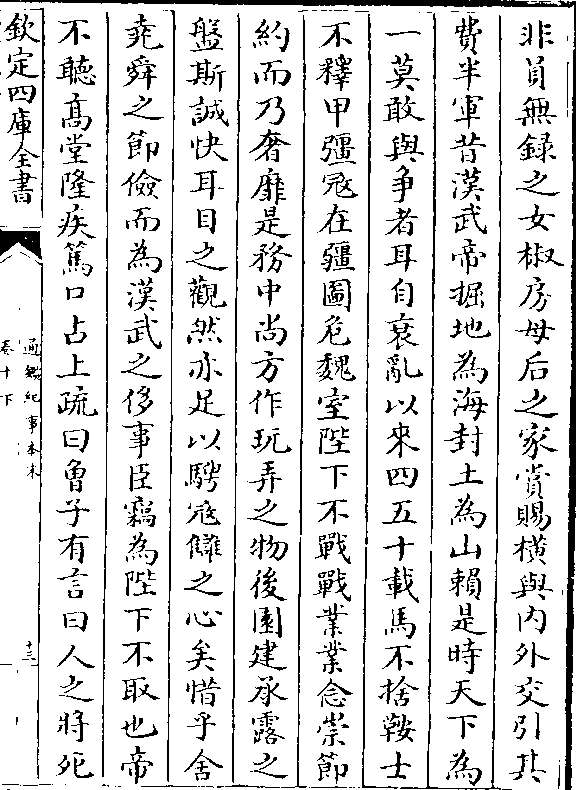 非員無録之女椒房母后之家賞賜横與内外交引其
費半軍昔漢武帝掘地為海封土為山賴是時天下為
一莫敢與爭者耳自衰亂以來四五十載馬不捨鞍士
不釋甲彊冦在疆圖危魏室陛下不戰戰業業念崇節
約而乃奢靡是務中尚方作玩弄之物後園建承露之
盤斯誠快耳目之觀然亦足以騁冦讎之心矣惜乎舍
堯舜之節儉而為漢武之侈事臣竊為陛下不取也帝
不聽髙堂隆疾篤口占上疏曰曽子有言曰人之將死
欽定四庫全書
通鑑紀事本末
卷十下
十三